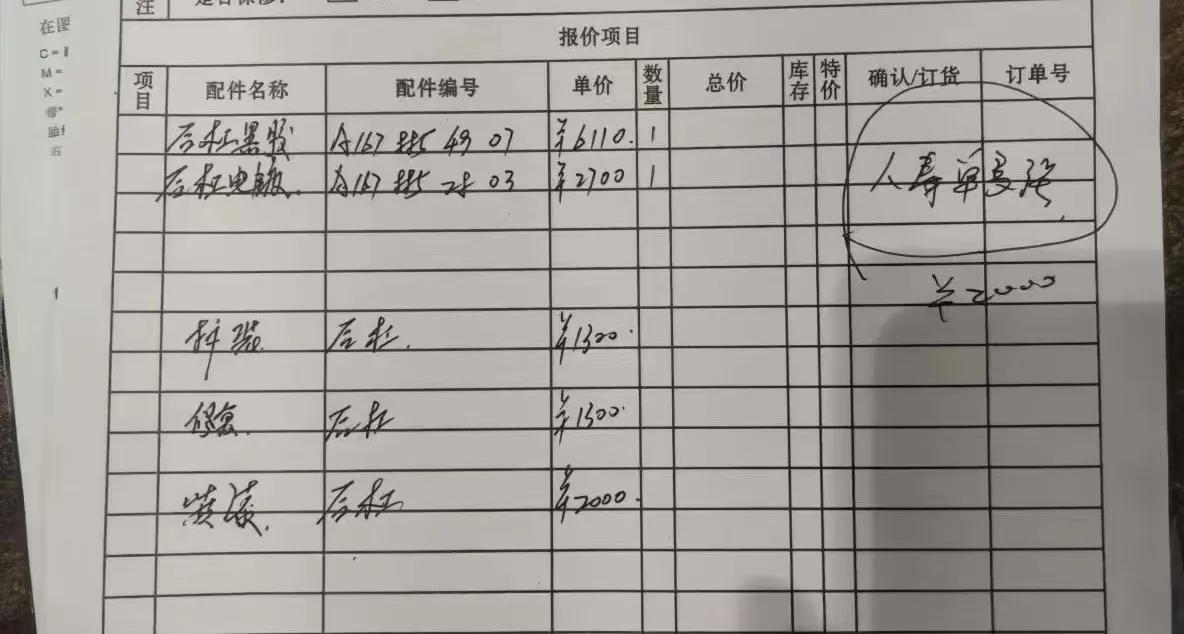 注
在图
C =
M =
X =
右
报价项目
项目 配件名称 配件编号 单价 数量 总价 库存 特价 确认/订货 订单号
后杠黑胶 A167 885 49 07 ¥6110. 1
后杠电镀 A167 885 03 ¥2700 1
人寿
¥2000
拆装 后杠. ¥1300.
修复 后杠 ¥1300.
喷漆. 后杠 ¥2000.